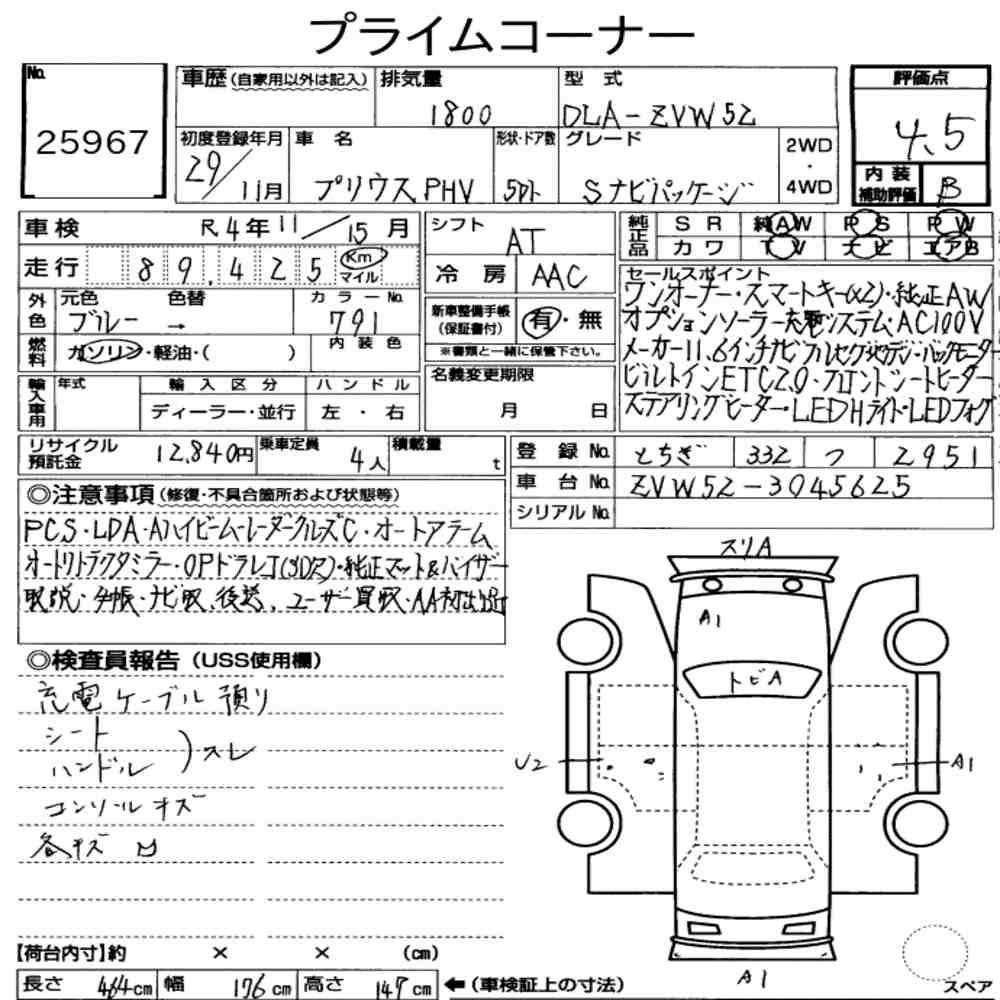 プライムコーナー
No.
25967
車歴(自家用以外は記入)
排気量
1800
型 式
DLA-ZVW52
評価点
4.5
初度登録年月
29/11月
車 名
プリウスPHV
形状・ドア数
5Dr
グレード
Sナビパッケージ
2WD
・
4WD
内 装
補助評価
B
車検 R4年11/15月
走行 89,425 Km マイル
外色
元色 色替
ブルー →
カラーNo.
791
燃料
ガソリン・軽油・( )
内装色
輸入車用
年式
輸入区分
ディーラー・並行
ハンドル
左 ・ 右
シフト
AT
冷房
AAC
新車整備手帳
(保証書付)
有・無
※書類と一緒に保管下さい。
名義変更期限
月 日
純正品
SR 純AW PS PW
カワ TV ナビ エアB
セールスポイント
ワンオーナー・スマートキー(x2)・純正AW
オプションソーラー充電システム・AC100V
メーカー11.6インチナビフルセグ地デジ・バックモニター
ビルトインETC2.0・フロントシートヒーター
ステアリングヒーター・LEDHライト・LEDフォグ
リサイクル
預託金
12,840円
乗車定員
4人
積載量
t
登録No. とちぎ 332 つ 2951
車台No. ZVW52-3045625
シリアルNo.
◎注意事項(修復・不具合箇所および状態等)
PCS・LDA・Aハイビーム・レーダークルズC・オートアラーム
オートリトラクタミラー・OPドラレコ(3DR)・純正マット&バイザー
取説・手帳・ナビ取、後送、ユーザー買取・AA初出品
◎検査員報告(USS使用欄)
充電ケーブル預り
シート
ハンドル
)スレ
コンソールキズ
各キズ凹
スリA
A1
トビA
U2
A1
A1
スペア
【荷台内寸】約 × × (cm)
長さ 464cm 幅 176cm 高さ 147cm ←(車検証上の寸法)